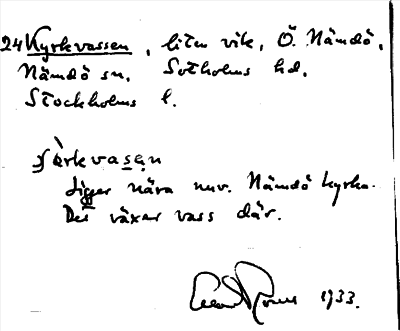 24 Kyrkvassen, liten vik, Ö. Nämdö,
Nämdö sn, Sotholms hd,
Stockholms l.
Ligger nära nuv. Nämdö kyrka.
Det växer vass där.
1933.